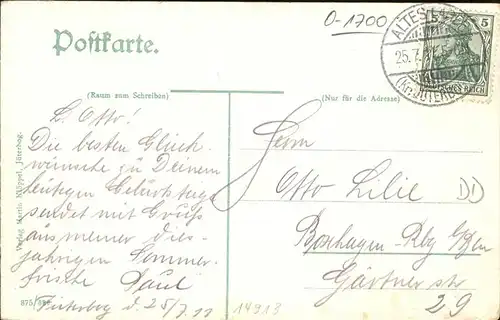 O-1700
Postkarte.
ALTES LAGER
25.7.
(Kr. JÜTERBOG)
5
DEUTSCHES REICH
(Raum zum Schreiben)
(Nur für die Adresse)
L. Otto!
Die besten Glück-
wünsche zu Deinem
heutigen Geburtstage
sendet mit Gruß
aus meiner dies-
jährigen Sommer-
frische Paul
d. 25/7. 11
Herrn
Otto Lilie
DD
Boxhagen-Rbg
Gärtnerstr
29
14913
Verlag Martin Müppel, Jüterbog.
875/